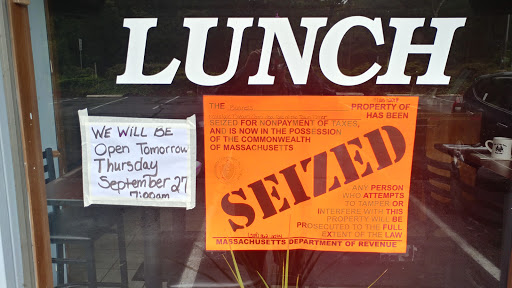 LUNCH
WE WILL BE
Open Tomorrow
Thursday
September 27
7:00am
THE
PROPERTY OF
HAS BEEN
SEIZED FOR NONPAYMENT OF TAXES,
AND IS NOW IN THE POSSESSION
OF THE COMMONWEALTH
OF MASSACHUSETTS
SEIZED
ANY PERSON
WHO ATTEMPTS
TO TAMPER OR
INTERFERE WITH THIS
PROPERTY WILL BE
PROSECUTED TO THE FULL
EXTENT OF THE LAW
MASSACHUSETTS DEPARTMENT OF REVENUE